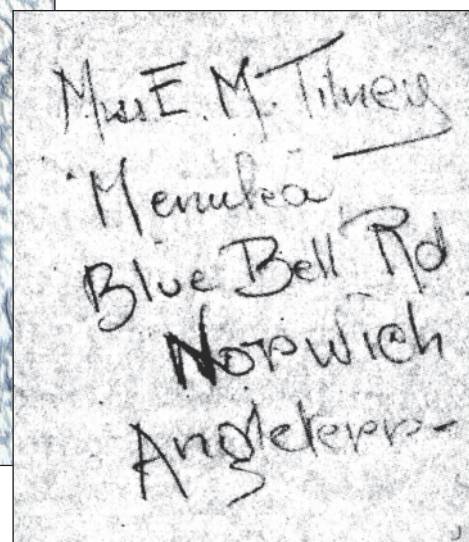 Miss E. M. Titney
"Menuka"
Blue Bell Rd
Norwich
Angleterre